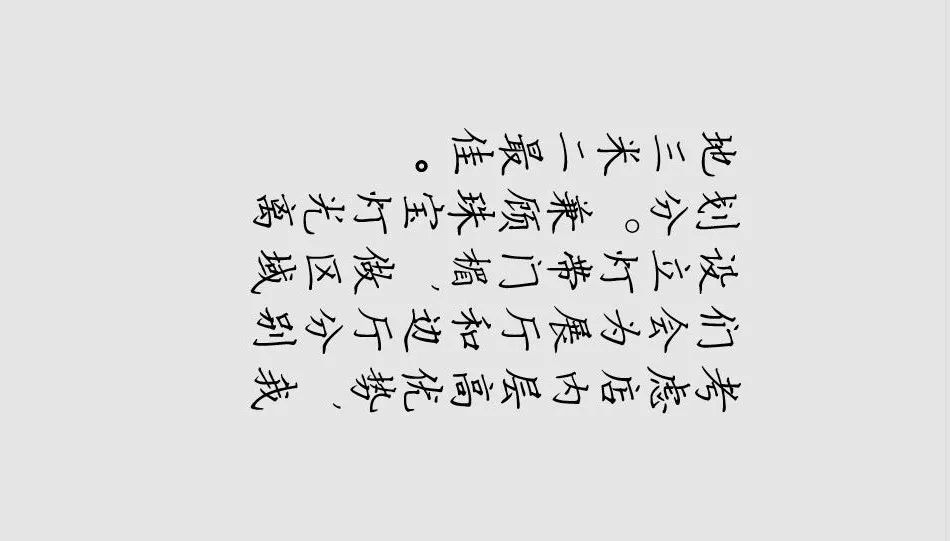 考虑店内层高优势，我
们会为展厅和边厅分别
设立灯带门楣，做区域
划分。兼顾珠宝灯光离
地三米二最佳。